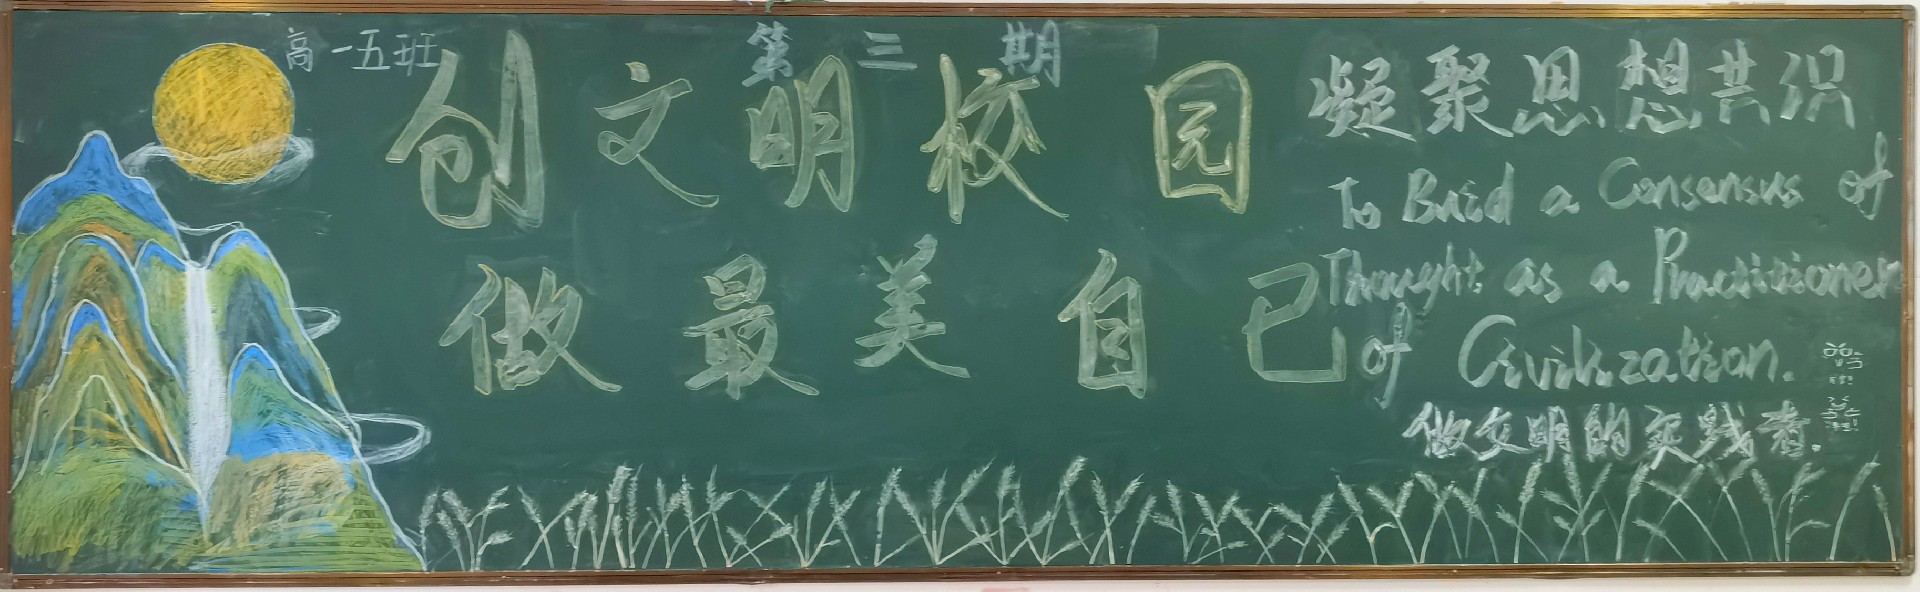 高一五班
第三期
创文明校园
做最美自己
凝聚思想共识
To Build a Consensus of
Thought as a Practitioner
of Civilization.
做文明的实践者.